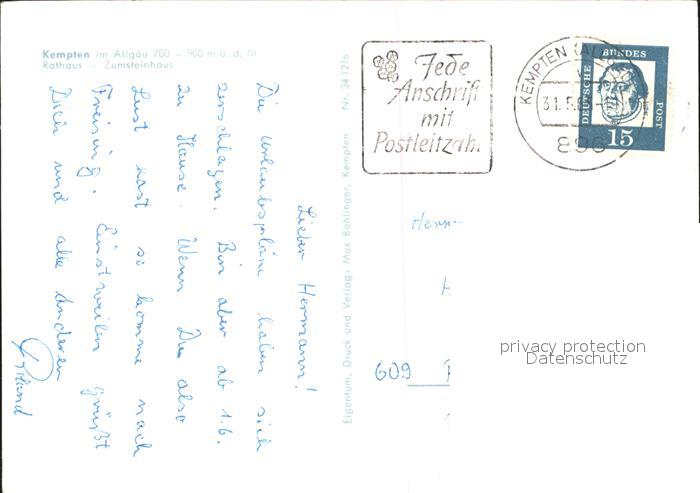 Kempten im Allgäu 700 – 900 m ü. d. M
Rathaus – Zumsteinhaus
Lieber Hermann!
Die Urlaubspläne haben sich
zerschlagen. Bin aber ab 1.6.
zu Hause. Wenn Du also
Lust hast so komme nach
Freising. Einstweilen grüßt
Dich und alle Anderen
Eigentum, Druck und Verlag: Max Bahlinger, Kempten Nr. 341216
Jede
Anschrift
mit
Postleitzah.
KEMPTEN (AL
31.5.6
896
DEUTSCHE
BUNDES
POST
15
Herrn
H
609
privacy protection
Datenschutz